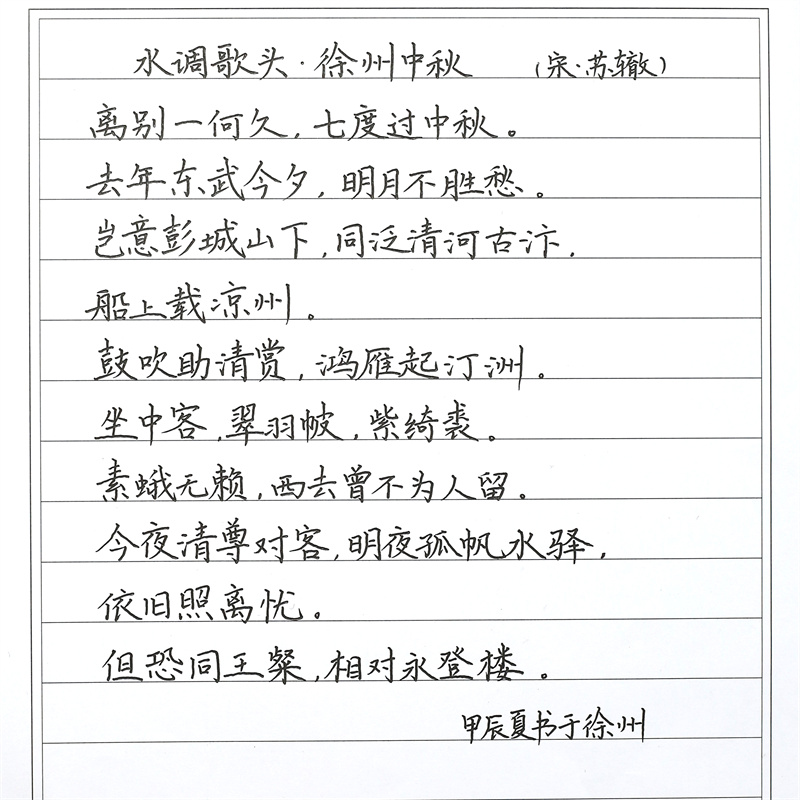 水调歌头·徐州中秋 （宋·苏辙）
离别一何久,七度过中秋。
去年东武今夕,明月不胜愁。
岂意彭城山下,同泛清河古汴,
船上载凉州。
鼓吹助清赏,鸿雁起汀洲。
坐中客,翠羽帔,紫绮裘。
素娥无赖,西去曾不为人留。
今夜清尊对客,明夜孤帆水驿,
依旧照离忧。
但恐同王粲,相对永登楼。
甲辰夏书于徐州